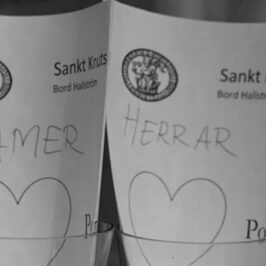 Sankt Knuts
Bord Hallström
AMER
Sankt
Bord Hallströ
HERRAR